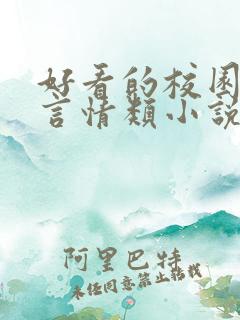 好看的校园
言情类小说
阿里巴特
未经同意禁止转载